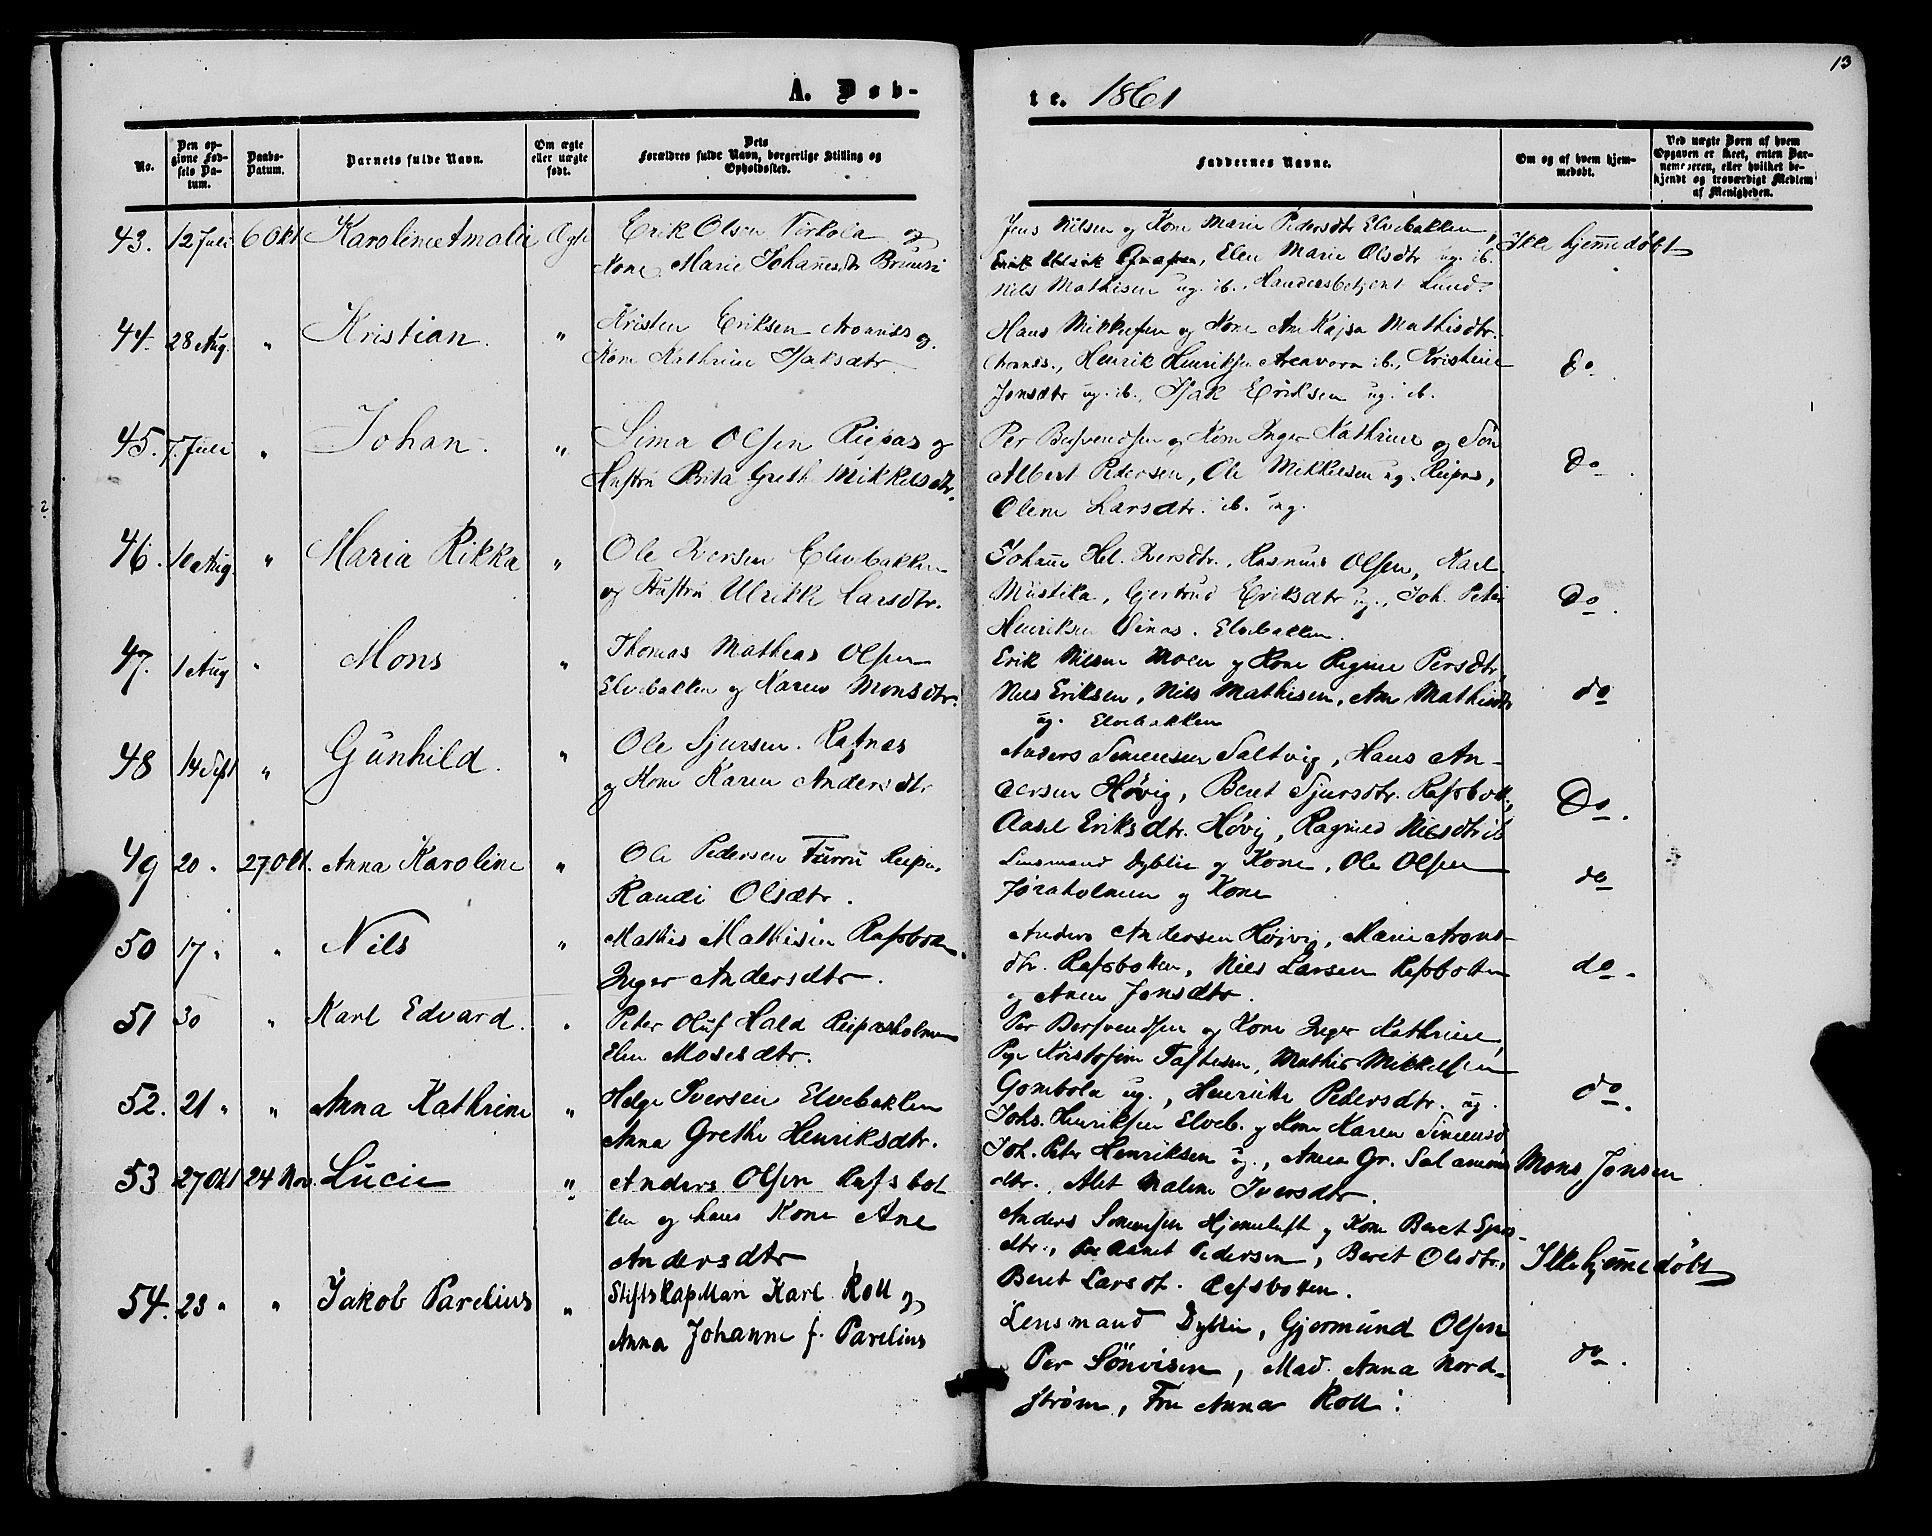 13
A. Døb-
te. 1861
No.
Den op-
givne Fød-
sels Da-
tum.
Daabs-
Datum.
Barnets fulde Navn.
Om ægte
eller uægte
født.
Dets
Forældres fulde Navn, borgerlige Stilling og
Opholdssted.
Faddernes Navne.
Om og af hvem hjem-
medøbt.
Ved uægte Børn af hvem
Opgaven er skeet, enten Bar-
nemoderen, eller hvilket be-
kjendt og troværdigt Medlem
af Menigheden.
43. 12 Juli 6 Okt. Karoline Amalie Ægte
Erik Olsen Nirkola og
Kone Marie Johannesdtr
Jens Nilsen og Kone Marie Pedersdtr Elvebakken,
Elen Marie Olsdtr ug. ib.
Nils Mathisen ug. ib., Handelsbetjent Lund.
Ikke hjemmedøbt
44. 28 Aug. " Kristian. "
Kristen Eriksen og
Kone Kathrine Isaksdtr.
Hans Mikkelsen og Kone An Kajsa Mathisdtr.
Henrik Henriksen ib., Kristine
Jonsdtr ug. ib., Isak Eriksen ug. ib.
Do
45. 7. Juli " Johan. "
Sima Olsen Riepas og
Hustru Brita Greth Mikkelsdtr.
Per Besvendsen og Kone Inger Kathrine og Søn
Albert Pedersen, Ole Mikkelsen ug. Reipas,
Olene Larsdtr. ib. ug.
Do
46. 10 Aug. " Maria Rikka "
Ole Iversen Elvebakken
og Hustru Ulrikke Larsdtr.
Johanne Hel. Iversdtr., Rasmus Olsen, Karl
Mustika, Gjertrud Eriksdtr ug., Joh. Peter
Henriksen Elvebakken.
Do.
47. 1 Aug " Mons "
Thomas Mathias Olsen
Elvebakken og Karen Monsdtr.
Erik Nilsen Moen og Kone Regine Persdtr,
Nils Eriksen, Nils Mathisen, Ane Mathisdtr
ug. Elvebakken
do
48 14 Sept " Gunhild. "
Ole Sjursen. Rafnas
og Kone Karen Andersdtr
Anders Simensen Saltvig, Hans An-
dersen Høvig, Beret Sjursdtr. Rafsbott.,
Aasel Eriksdtr. Høvig, Ragnild Nilsdtr ib
Do.
49 20 " 27 Okt. Anna Karoline "
Ole Pedersen Furru Reipas,
Randi Olsdtr.
Lensmand Dyblie og Kone, Ole Olsen
Jøraholmen og Kone
do
50 17 " " Nils "
Mathis Mathisen Rafsbotten.
Inger Andersdtr.
Anders Andersen Højvig, Marie Arons-
dtr. Rafsbotten, Nils Larsen Rafsbotten
og Anne Jonsdtr.
do.
51 30 " Karl Edvard. "
Peter Oluf Hald Reipasholmen
Elen Mosesdtr.
Per Besvendsen og Kone Inger Kathrine,
Pige Kristofine Taftesen, Mathis Mikkelsen
Gombola ug., Henrikke Pedersdtr. ug.
do.
52. 21 " " Anna Kathrine "
Helge Iversen Elvebakken
Anna Grethe Henriksdtr.
Johs. Henriksen Elveb. og Kone Karen Simensd
Joh. Peter Henriksen ug., Anna Gr. Salamons
dtr., Alet Maline Iversdtr.
53 27 Okt 24 Nov. Lucie "
Anders Olsen Rafsbot
ten og hans Kone Ane
Andersdtr
Anders Simensen Hjemeluft og Kone Beret Sjurs-
dtr., Pedersen, Beret Olsdtr.,
Beret Larsdt. Refsbotten.
Mons Jonsen
54. 23 " " Jakob Parelius "
Stiftskapellan Karl Roll og
Anna Johanne f. Parelius
Lensmand Dyblie, Gjermund Olsen
Per Sönvisen, Mad. Anna Nord-
strøm, Fru Anna Roll.
Ikke hjemmedøbt
do.